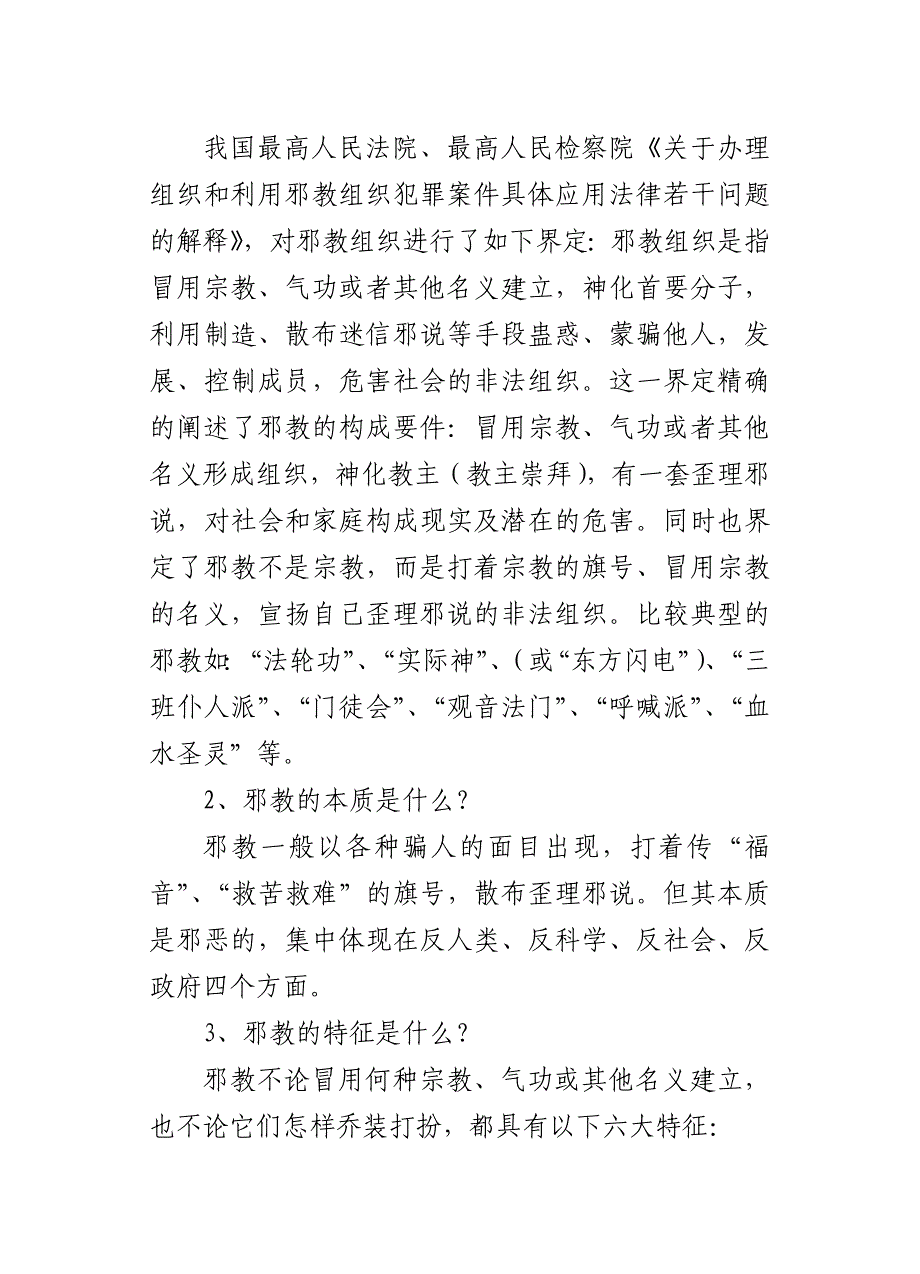 我国最高人民法院、最高人民检察院《关于办理
组织和利用邪教组织犯罪案件具体应用法律若干问题
的解释》，对邪教组织进行了如下界定：邪教组织是指
冒用宗教、气功或者其他名义建立，神化首要分子，
利用制造、散布迷信邪说等手段蛊惑、蒙骗他人，发
展、控制成员，危害社会的非法组织。这一界定精确
的阐述了邪教的构成要件：冒用宗教、气功或者其他
名义形成组织，神化教主（教主崇拜），有一套歪理邪
说，对社会和家庭构成现实及潜在的危害。同时也界
定了邪教不是宗教，而是打着宗教的旗号、冒用宗教
的名义，宣扬自己歪理邪说的非法组织。比较典型的
邪教如：“法轮功”、“实际神”、（或“东方闪电”）、“三
班仆人派”、“门徒会”、“观音法门”、“呼喊派”、“血
水圣灵”等。
2、邪教的本质是什么？
邪教一般以各种骗人的面目出现，打着传“福
音”、“救苦救难”的旗号，散布歪理邪说。但其本质
是邪恶的，集中体现在反人类、反科学、反社会、反
政府四个方面。
3、邪教的特征是什么？
邪教不论冒用何种宗教、气功或其他名义建立，
也不论它们怎样乔装打扮，都具有以下六大特征：